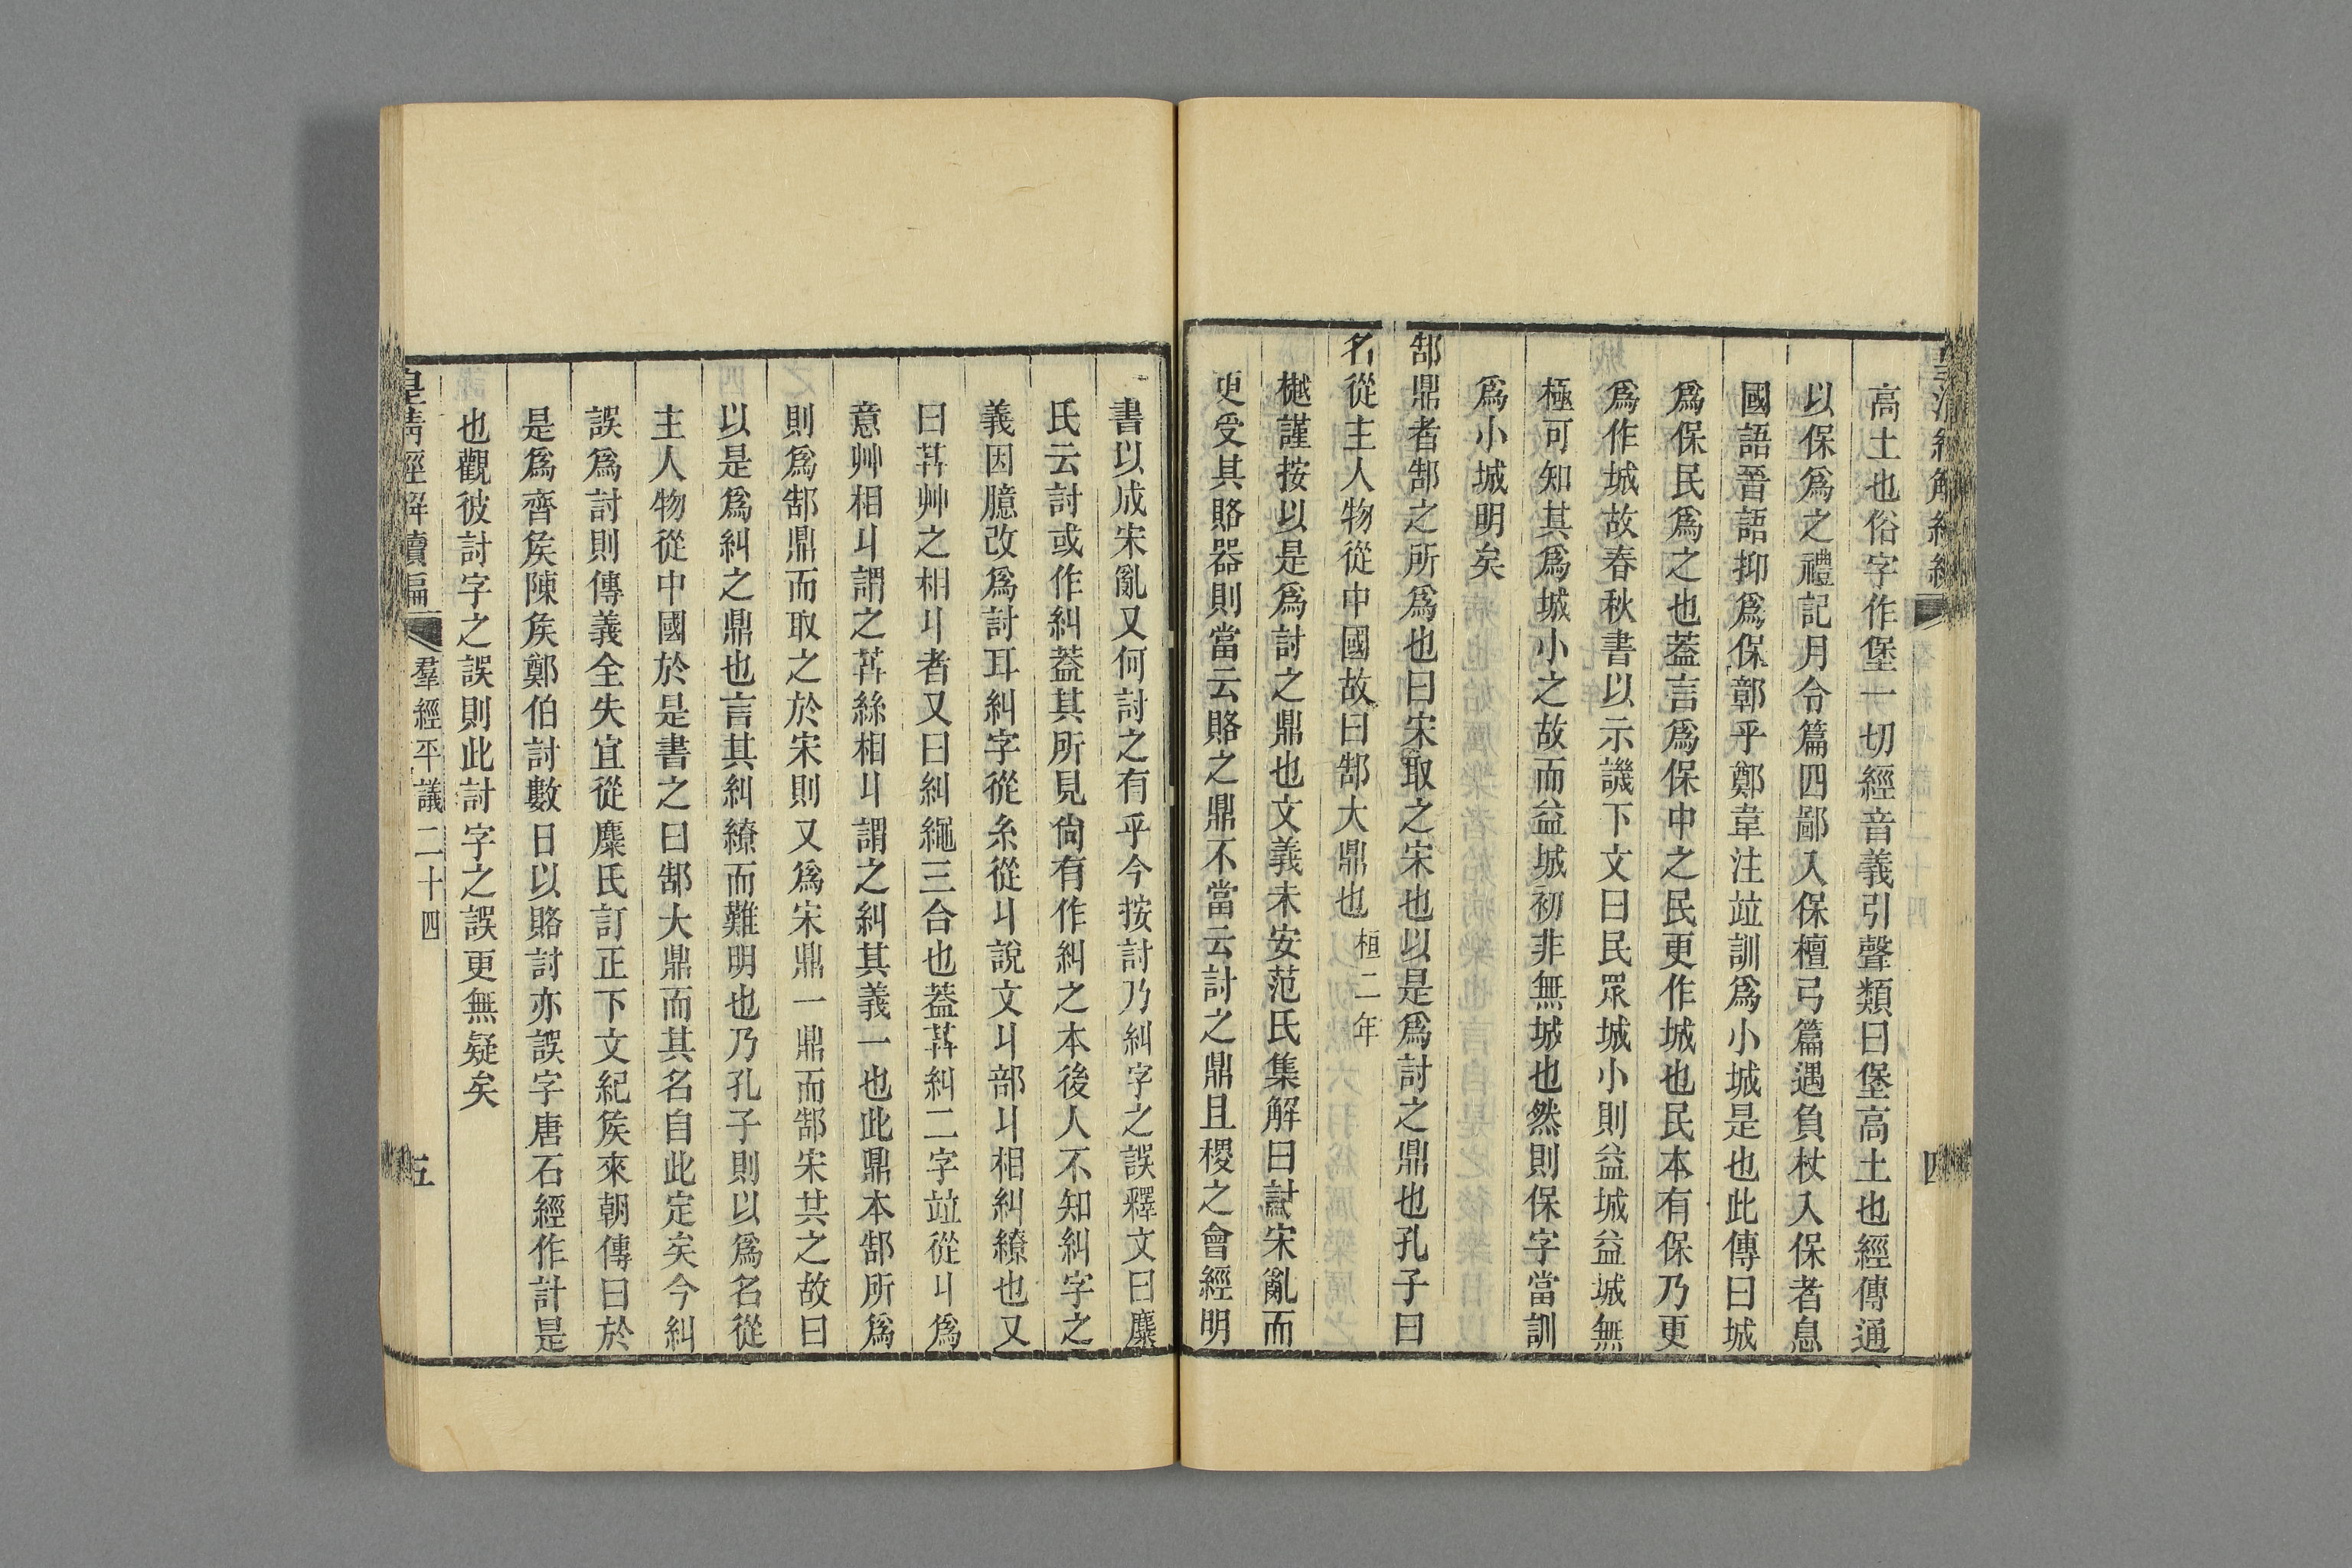 高土也俗字作堡一切經音義引聲類曰堡高土也經傳通
以保爲之禮記月令篇四鄙入保檀弓篇遇負杖入保者息
國語晉語抑爲保鄣乎鄭韋注竝訓爲小城是也此傳曰城
爲保民爲之也蓋言爲保中之民更作城也民本有保乃更
爲作城故春秋書以示譏下文曰民眾城小則益城益城無
極可知其爲城小之故而益城初非無城也然則保字當訓
爲小城明矣
郜鼎者郜之所爲也曰宋取之宋也以是爲討之鼎也孔子曰
名從主人物從中國故曰郜大鼎也桓二年
樾謹按以是爲討之鼎也文義未安范氏集解曰討宋亂而
更受其賂器則當云賂之鼎不當云討之鼎且稷之會經明
書以成宋亂又何討之有乎今按討乃糾字之誤釋文曰麋
氏云討或作糾蓋其所見尙有作糾之本後人不知糾字之
義因臆改爲討耳糾字從糸從丩說文丩部丩相糾繚也又
曰茻艸之相丩者又曰糾繩三合也蓋茻糾二字竝從丩爲
意艸相丩謂之茻絲相丩謂之糾其義一也此鼎本郜所爲
則爲郜鼎而取之於宋則又爲宋鼎一鼎而郜宋共之故曰
以是爲糾之鼎也言其糾繚而難明也乃孔子則以爲名從
主人物從中國於是書之曰郜大鼎而其名自此定矣今糾
誤爲討則傳義全失宜從麋氏訂正下文紀矦來朝傳曰於
是爲齊矦陳矦鄭伯討數日以賂討亦誤字唐石經作計是
也觀彼討字之誤則此討字之誤更無疑矣
皇清經解續編
羣經平議二十四
五